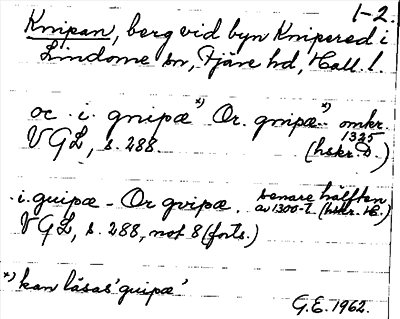 1-2.
Knipan, berg vid byn Knipered i
Lindome sn, Fjäre hd, Hall. l.
oc .i. gnipæ*) Or. gnipæ*) omkr. 1325
VGL, s. 288. (hskr. D.)
.i. guipæ - Or gvipæ. senare hälften
av 1300-t. (hskr. E.)
VGL, s. 288, not 8 (forts.)
*) kan läsas 'guipæ'
G.E. 1962.